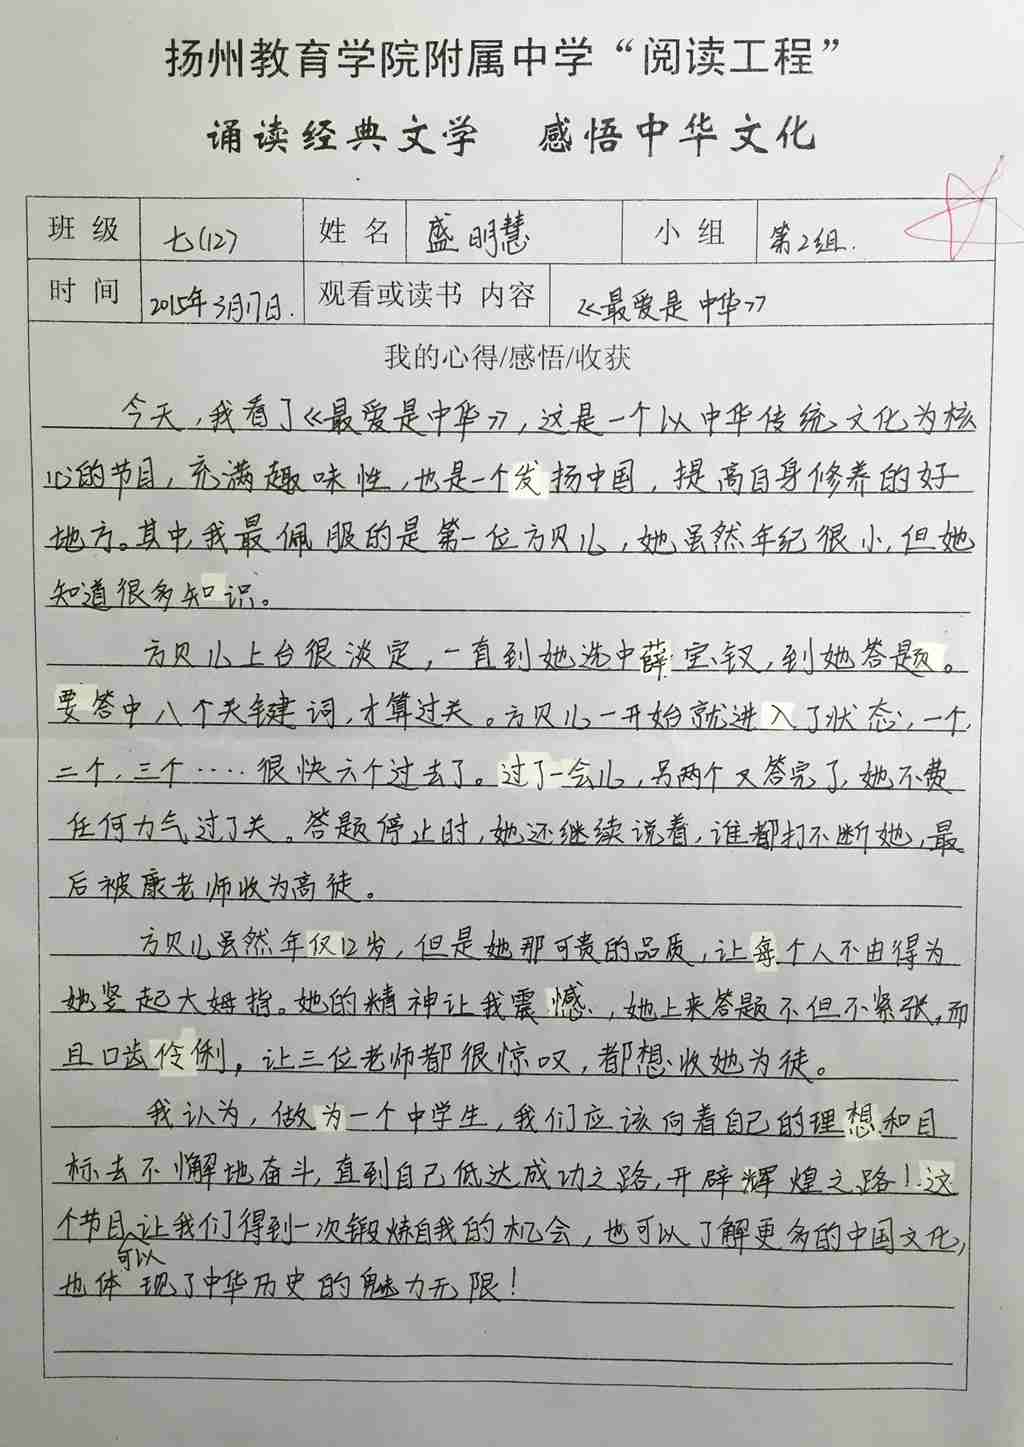 扬州教育学院附属中学“阅读工程”
诵读经典文学 感悟中华文化
班 级 七(12) 姓 名 盛明慧 小 组 第2组.
时 间 2015年3月17日. 观看或读书 内容 《最爱是中华》
我的心得/感悟/收获
今天,我看了《最爱是中华》,这是一个以中华传统文化为核
心的节目,充满趣味性,也是一个发扬中国,提高自身修养的好
地方。其中,我最佩服的是第一位方贝儿,她虽然年纪很小,但她
知道很多知识。
方贝儿上台很淡定,一直到她选中薛宝钗,到她答题。
要答中八个关键词,才算过关。方贝儿一开始就进入了状态,一个,
二个,三个·····很快六个过去了。过了一会儿,另两个又答完了,她不费
任何力气过了关。答题停止时,她还继续说着,谁都打不断她,最
后被康老师收为高徒。
方贝儿虽然年仅12岁,但是她那可贵的品质,让每个人不由得为
她竖起大姆指。她的精神让我震憾,她上来答题不但不紧张,而
且口齿伶俐,让三位老师都很惊叹,都想收她为徒。
我认为,做为一个中学生,我们应该向着自己的理想和目
标去不懈地奋斗,直到自己低达成功之路,开辟辉煌之路!这
个节目可以让我们得到一次锻炼自我的机会,也可以了解更多的中国文化,
也体现了中华历史的魅力无限!